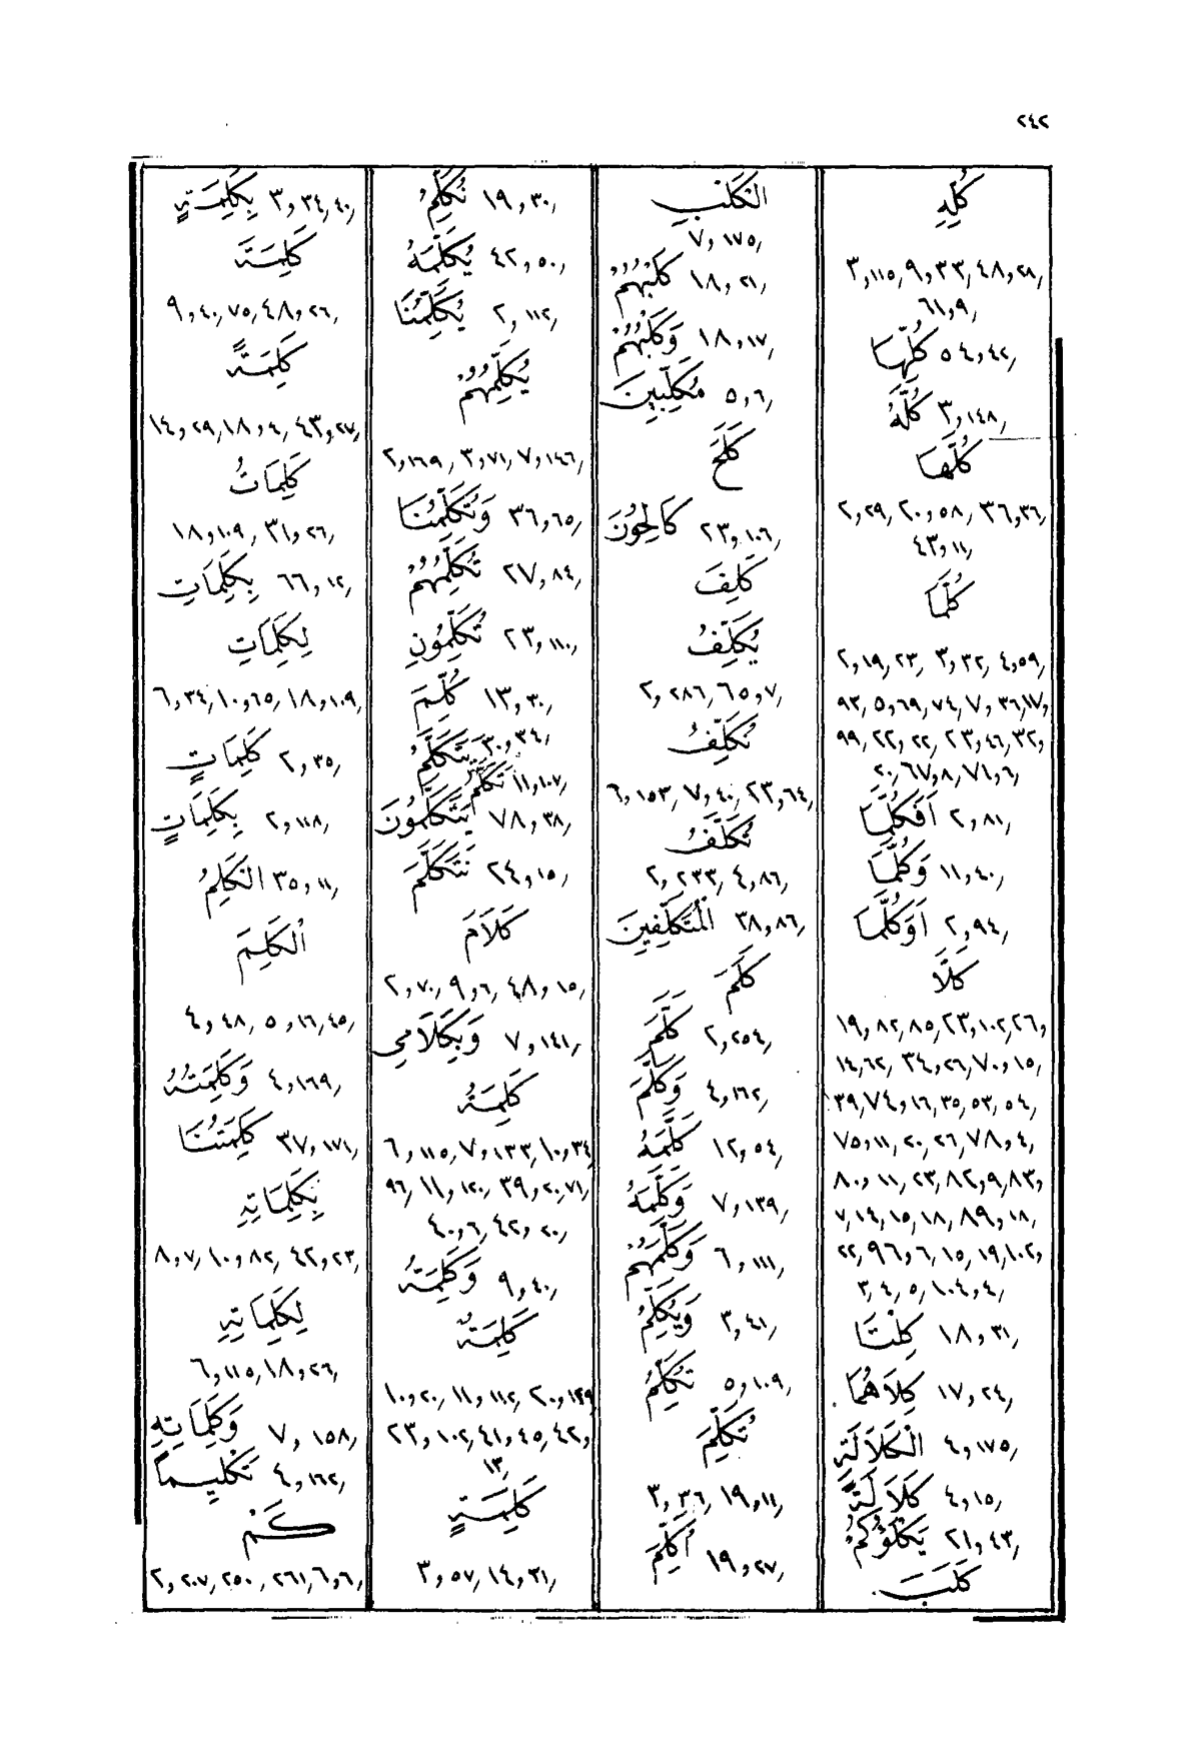 ٢٤٢
كُلِّهِ
٣,١١٥, ٩,٣٣, ٤٨,٢٨,
٦١,٩,
كُلِّهَا ٥٤,٤٢,
كُلَّهُ ٣,١٤٨,
كُلَّهَا
٢,٢٩, ٢٠,٥٨, ٣٦,٣٦,
٤٣,١١,
كُلَّمَا
٢,١٩,٢٣, ٣,٣٢, ٤,٥٩,
٩٣,٥,٦٩,٧٤,٧,٣٦,١٧,
٩٩,٢٢,٢٢,٢٣,٤٦,٣٢,
٢٠,٦٧,٨,٧١,٦,
اَفَكُلَّمَا ٢,٨١,
وَكُلَّمَا ١١,٤٠,
اَوَكُلَّمَا ٢,٩٤,
كَلَّا
١٩,٨٢,٨٥,٢٣,١٠٢,٢٦,
١٤,٦٢, ٣٤,٢٦,٧٠,١٥,
٣٩,٧٤,١٦,٣٥,٥٣,٥٤,
٧٥,١١,٢٠,٢٦,٧٨,٤,
٨٠,١١,٢٣,٨٢,٩,٨٣,
٧,١٤,١٥,١٨,٨٩,١٨,
٢٢,٩٦,٦,١٥,١٩,١٠٢,
٣,٤,٥,١٠٤,٤,
كِلْتَا ١٨,٣١,
كِلَاهُمَا ١٧,٢٤,
الْكَلَالَةِ ٤,١٧٥,
كَلَالَةً ٤,١٥,
يَكْلَؤُكُمْ ٢١,٤٣,
كَلَبَ
الْكَلْبِ
٧,١٧٥,
كَلْبُهُمْ ١٨,٢١,
وَكَلْبُهُمْ ١٨,١٧,
مُكَلِّبِينَ ٥,٦,
كَلَحَ
كَالِحُونَ ٢٣,١٠٦,
كَلِفَ
يُكَلِّفُ
٢,٢٨٦,٦٥,٧,
نُكَلِّفُ
٦,١٥٣,٧,٤٠,٢٣,٦٤,
تُكَلَّفُ
٢,٢٣٣,٤,٨٦,
الْمُتَكَلِّفِينَ ٣٨,٨٦,
كَلَمَ
كَلَّمَ ٢,٢٥٤,
وَكَلَّمَ ٤,١٦٢,
كَلَّمَهُ ١٢,٥٤,
وَكَلَّمَهُ ٧,١٣٩,
وَكَلَّمَهُمْ ٦,١١١,
وَيُكَلِّمُ ٣,٤١,
تُكَلِّمُ ٥,١٠٩,
تُكَلِّمَ
٣,٣٦, ١٩,١١,
أُكَلِّمَ ١٩,٢٧,
نُكَلِّمُ ١٩,٣٠,
يُكَلِّمَهُ ٤٢,٥٠,
يُكَلِّمُنَا ٢,١١٢,
يُكَلِّمُهُمْ
٢,١٦٩, ٣,٧١,٧,١٤٦,
وَتُكَلِّمُنَا ٣٦,٦٥,
تُكَلِّمُهُمْ ٢٧,٨٤,
تُكَلِّمُونِ ٢٣,١١٠,
كُلِّمَ ١٣,٣٠,
يَتَكَلَّمُ ٣٠,٣٤,
تَكَلَّمُ ١١,١٠٧,
يَتَكَلَّمُونَ ٧٨,٣٨,
نَتَكَلَّمَ ٢٤,١٥,
كَلَامَ
٢,٧٠, ٩,٦, ٤٨,١٥,
وَبِكَلَامِي ٧,١٤١,
كَلِمَةُ
٦,١١٥,٧,١٣٣,١٠,٣٤
٩٦,١١,١٢٠,٣٩,٢٠,٧١,
٤٠,٦,٤٢,٢٠,
وَكَلِمَةُ ٩,٤٠,
كَلِمَةٌ
١٠,٢٠, ١١,١١٢, ٢٠,١٢٩
٢٣,١٠٢,٤١,٤٥,٤٢,
١٣,
كَلِمَةٍ
٣,٥٧,١٤,٣١,
بِكَلِمَةٍ ٣,٣٤,٤٠,
كَلِمَةَ
٩,٤٠,٧٥,٤٨,٢٦,
كَلِمَةً
١٤,٢٩,١٨,٤,٤٣,٢٧,
كَلِمَاتُ
١٨,١٠٩, ٣١,٢٦,
بِكَلِمَاتِ ٦٦,١٢,
لِكَلِمَاتِ
٦,٣٤,١٠,٦٥,١٨,١٠٩,
كَلِمَاتٍ ٢,٣٥,
بِكَلِمَاتٍ ٢,١١٨,
الْكَلِمُ ٣٥,١١,
الْكَلِمَ
٤,٤٨,٥,١٦,٤٥,
وَكَلِمَتُهُ ٤,١٦٩,
كَلِمَتُنَا ٣٧,١٧١,
بِكَلِمَاتِهِ
٨,٧,١٠,٨٢, ٤٢,٢٣,
لِكَلِمَاتِهِ
٦,١١٥,١٨,٢٦,
وَكَلِمَاتِهِ ٧,١٥٨,
تَكْلِيمًا ٤,١٦٢,
كَمْ
٢,٢٠٧,٢٥٠,٢٦١,٦,٦,